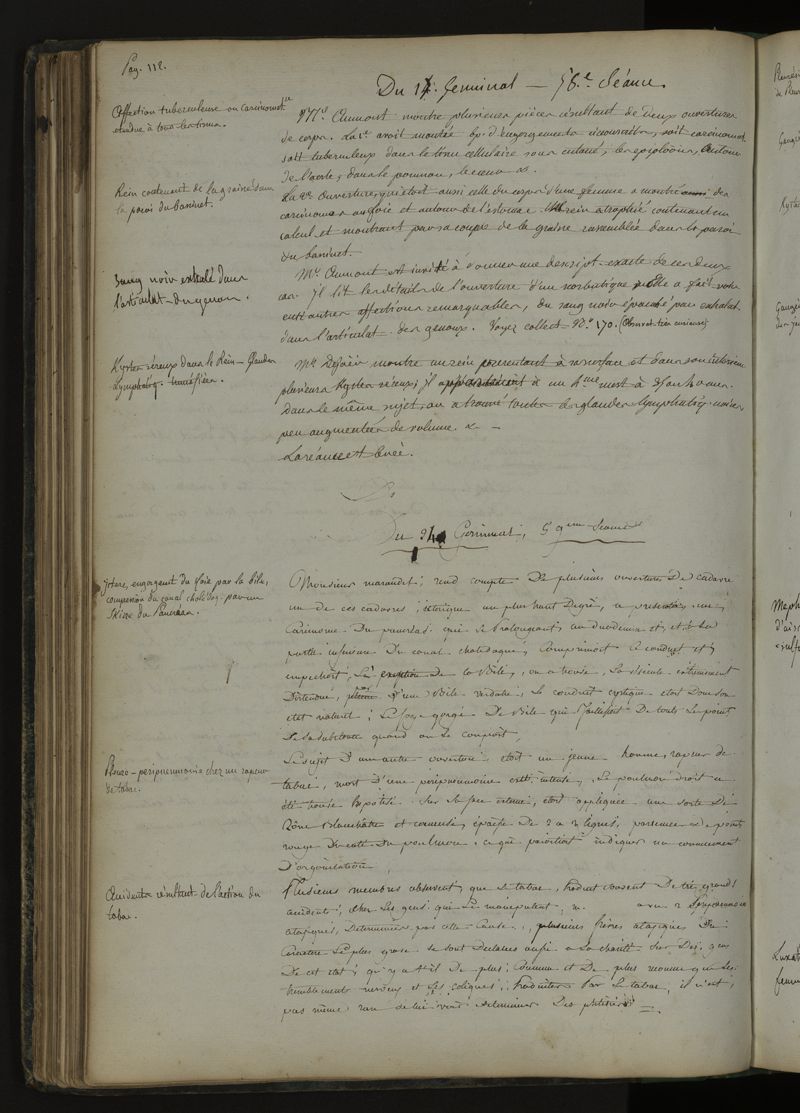 Pag. 112.
Du 14. Germinal — 58.e Séance.
Affection tuberculeuse ou carcinomat.se
étendue à tous les tissus.
Mr. Aumont montre plusieurs pièces résultant de deux ouvertures
de corps. La 1re avoit montré des engorgements soit carcinomat.
soit tuberculeux dans le tissu cellulaire sous cutané, les epiploons, autour
de l'aorte, dans le poumon, le cœur &.
Rein contenant de la graine dans
la paroi du bassinet.
La 2e ouverture, qui étoit aussi celle du corps d'une femme a montré des
carcinomes au foie et autour de l'estomac. Un rein atrophié contenant un
calcul et montrant par sa coupe de la graine rassemblée dans la paroi
du bassinet.
Sang noir exhalé dans
l'articulat. du genou.
Mr. Aumont est invité à donner une descript. exacte de ces deux
cas. Il lit les détails de l'ouverture d'un scorbutique elle a fait voir
entr'autres affections remarquables, du sang noir épanché par exhalat.
dans l'articulat. des genoux. Voyez collect. No. 170. (Observat. très curieuse)
Kystes séreux dans le Rein — Glandes
Lymphatiq. tuméfiées.
Mr. montre un rein présentant à sa surface et dans son intérieur
plusieurs Kystes séreux; il appartenoit à un mort à
dans le même sujet, on a trouvé toutes les glandes lymphatiq. noires
peu augmentées de volume. &. —
La séance est levée.
Du 24 Germinal, 59eme Séance
Ictere, engorgemt du foie par la bile,
compression du canal choledoq. par un
skirre du Pancréas.
Monsieur marandel; rend compte De plusieurs ouvertures De cadavre
un de ces cadavres; ictérique au plus haut Degré, a presenté, un
Carcinome Du pancréas qui se Prolongeant au duodenum et, à la
partie inférieure Du canal choledoque, comprimoit ce conduit et
empechoit, De la Bile, on a trouvé, La vésicule extrêmement
Distendue, d'une Bile verdatre; le conduit cystique etoit Dans son
etat naturel; Le foye gorgé De Bile qui Jaillissoit De touts les points
De sa substance quand on Le coupoit,
Pleuro-peripneumonie chez un rapeur
de tabac.
Le sujet D'une autre ouverture, etoit un jeune homme, rapeur de
tabac, mort D'une peripneumonie tres intense, Le poulmon droit a
été trouvé hépatisé. Sur sa face externe, etoit appliquée une sorte De
Côene Blanchatre et couenneuse, épaisse De 2 a 3 lignes, parsemée de points
rouge Du coté Du poulmon. ce qui paroissoit indiquer un commencement
D'organisation,
Accidents résultant de l'action du
tabac.
Plusieurs membres observent, que le tabac, produit souvent De tres grands
accidents, chez Les gens qui Le manipulent, m. a vu 2
ataxiques, Determinées par cette Cause., plusieurs fièvres ataxiques Du
caractere Le plus grave se sont Declarées aussi a La charité Sur Des gens
De cet etat; qu'y a t'il De plus; Commun et De plus reconnu que Les
tremblements nerveux et Les coliques; Produites Par Le tabac, il n'est,
pas même rare de lui voir Determiner Des phtisies. =.